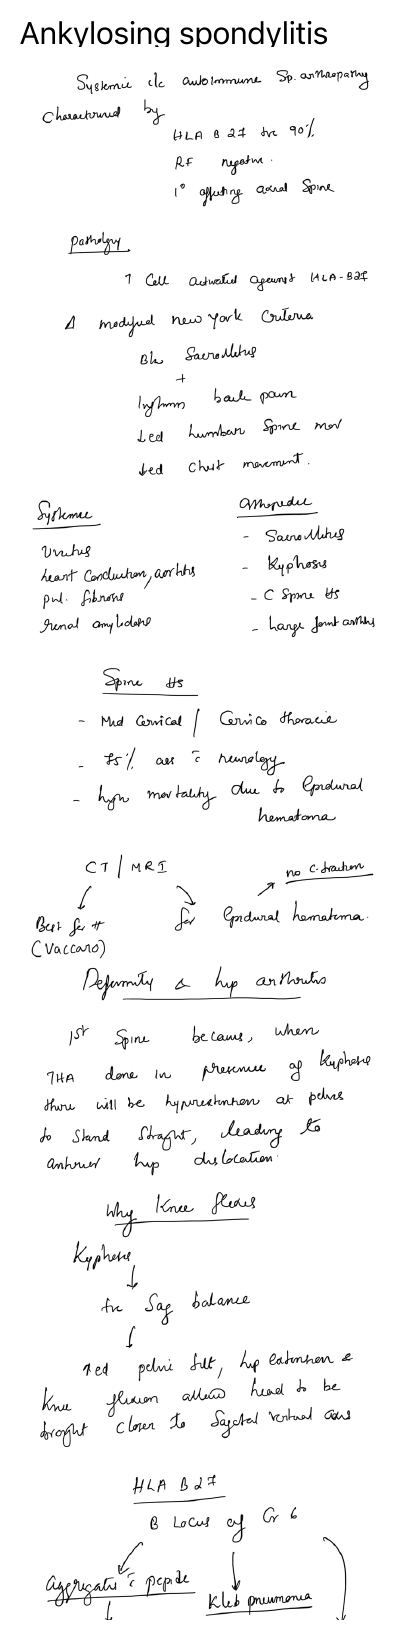 Ankylosing spondylitis
Systemic c/c autoimmune Sp. arthropathy
Characterised by
HLA B 27 +ve 90%
RF negative.
1° affecting axial Spine
Pathology
T Cell activated against HLA-B27
Δ modified new York Criteria
B/L Sacroilitis
+
Inflamm back pain
↓ed lumbar Spine mov
↓ed chest movement.
Systemic
Uveitis
heart Conduction, aortitis
pul. fibrosis
renal amyloidosis
Orthopedic
- Sacroilitis
- Kyphosis
- C Spine #s
- Large joint arthritis
Spine #s
- Mid Cervical / Cervico thoracic
- 75% ass c̄ neurology
- high mortality due to Epidural
hematoma
CT / MRI
no C. traction
Best for #
(Vaccaro)
for Epidural hematoma.
Deformity & hip arthritis
1st Spine because, when
THA done in presence of Kyphosis
there will be hyperextension at pelvis
to stand straight, leading to
anterior hip dislocation.
Why Knee flexes
Kyphosis
↓
+ve Sag balance
↓
↑ed pelvic tilt, hip extension &
Knee flexion allows head to be
brought closer to Sagittal vertical axis
HLA B27
B Locus of Cr 6
Aggregates c̄ pepide
Kleb pneumonia